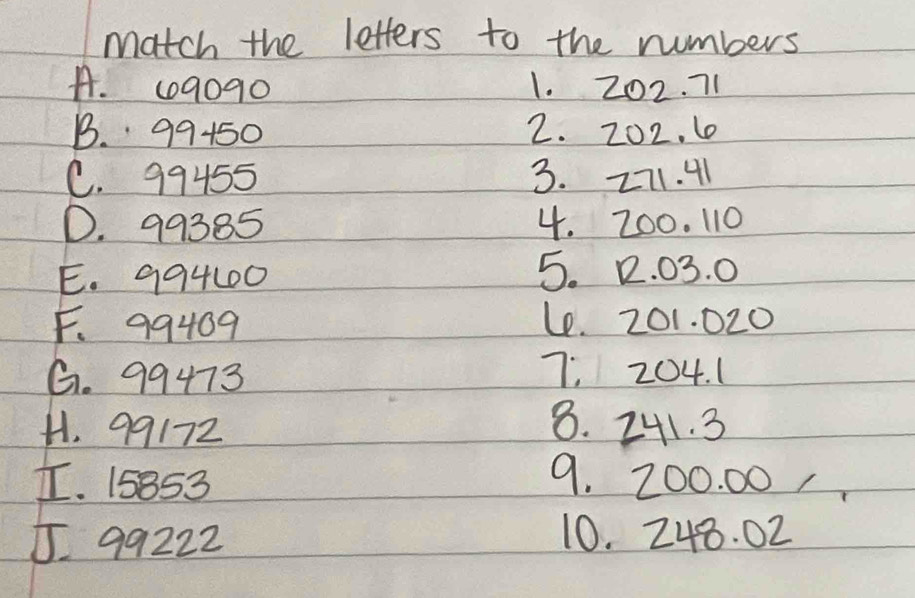 Match the letters to the numbers
A. 69090 1. 202.71
B. 99450 2. 202.6
C. 99455 3. 271.41
D. 99385 4. 200.110
E. 99460 5. 12.03.0
F. 99409 6. 201.020
G. 99473 7. 204.1
H. 99172 8. 241.3
I. 15853 9. 200.00
J. 99222 10. 248.02